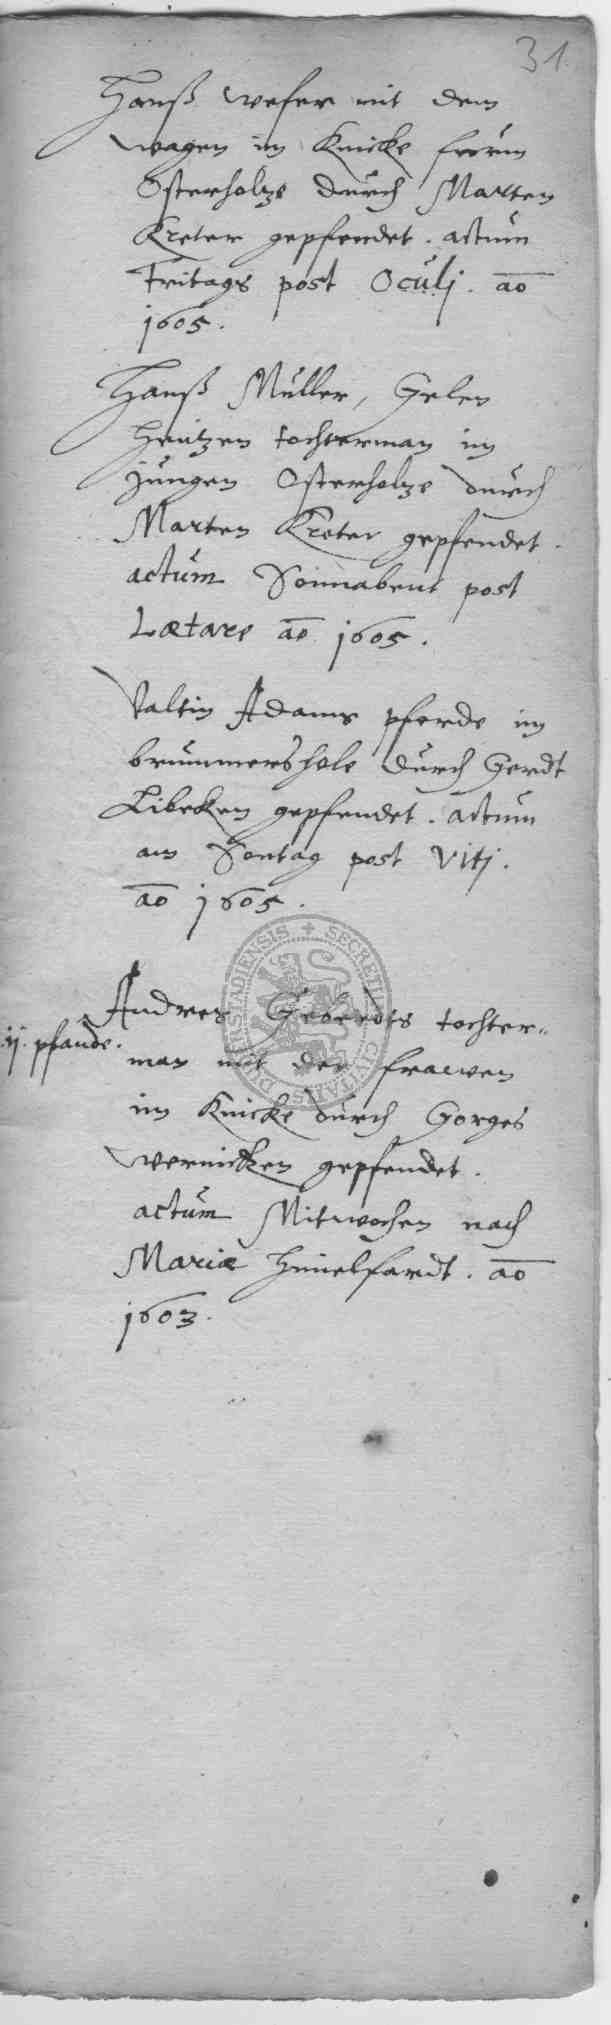 31.
Hanß weser mit dem
wagen im Knicke
Osterholze durch Marten
Kreter gepfendet. actum
Fritags post Oculj. ao
1605.
Hanß Müller, Gelen
Heitzen tochterman im
jungen Osterholze durch
Marten Kreter gepfendet.
actum Sonnabent post
Lætare ao 1605.
Valtin Adams pferde im
brummershole durch Gerdt
Libeken gepfendet. actum
am Sontag post Vitj.
ao 1605.
Andres Geberdts tochter-
ij. pfande.
man mit der frawen
im Knicke durch Gorges
wernicken gepfendet.
actum Mitwochen nach
Mariæ Himelfardt. ao
1603.
SECRETUM CIVITATIS DERSTADIENSIS